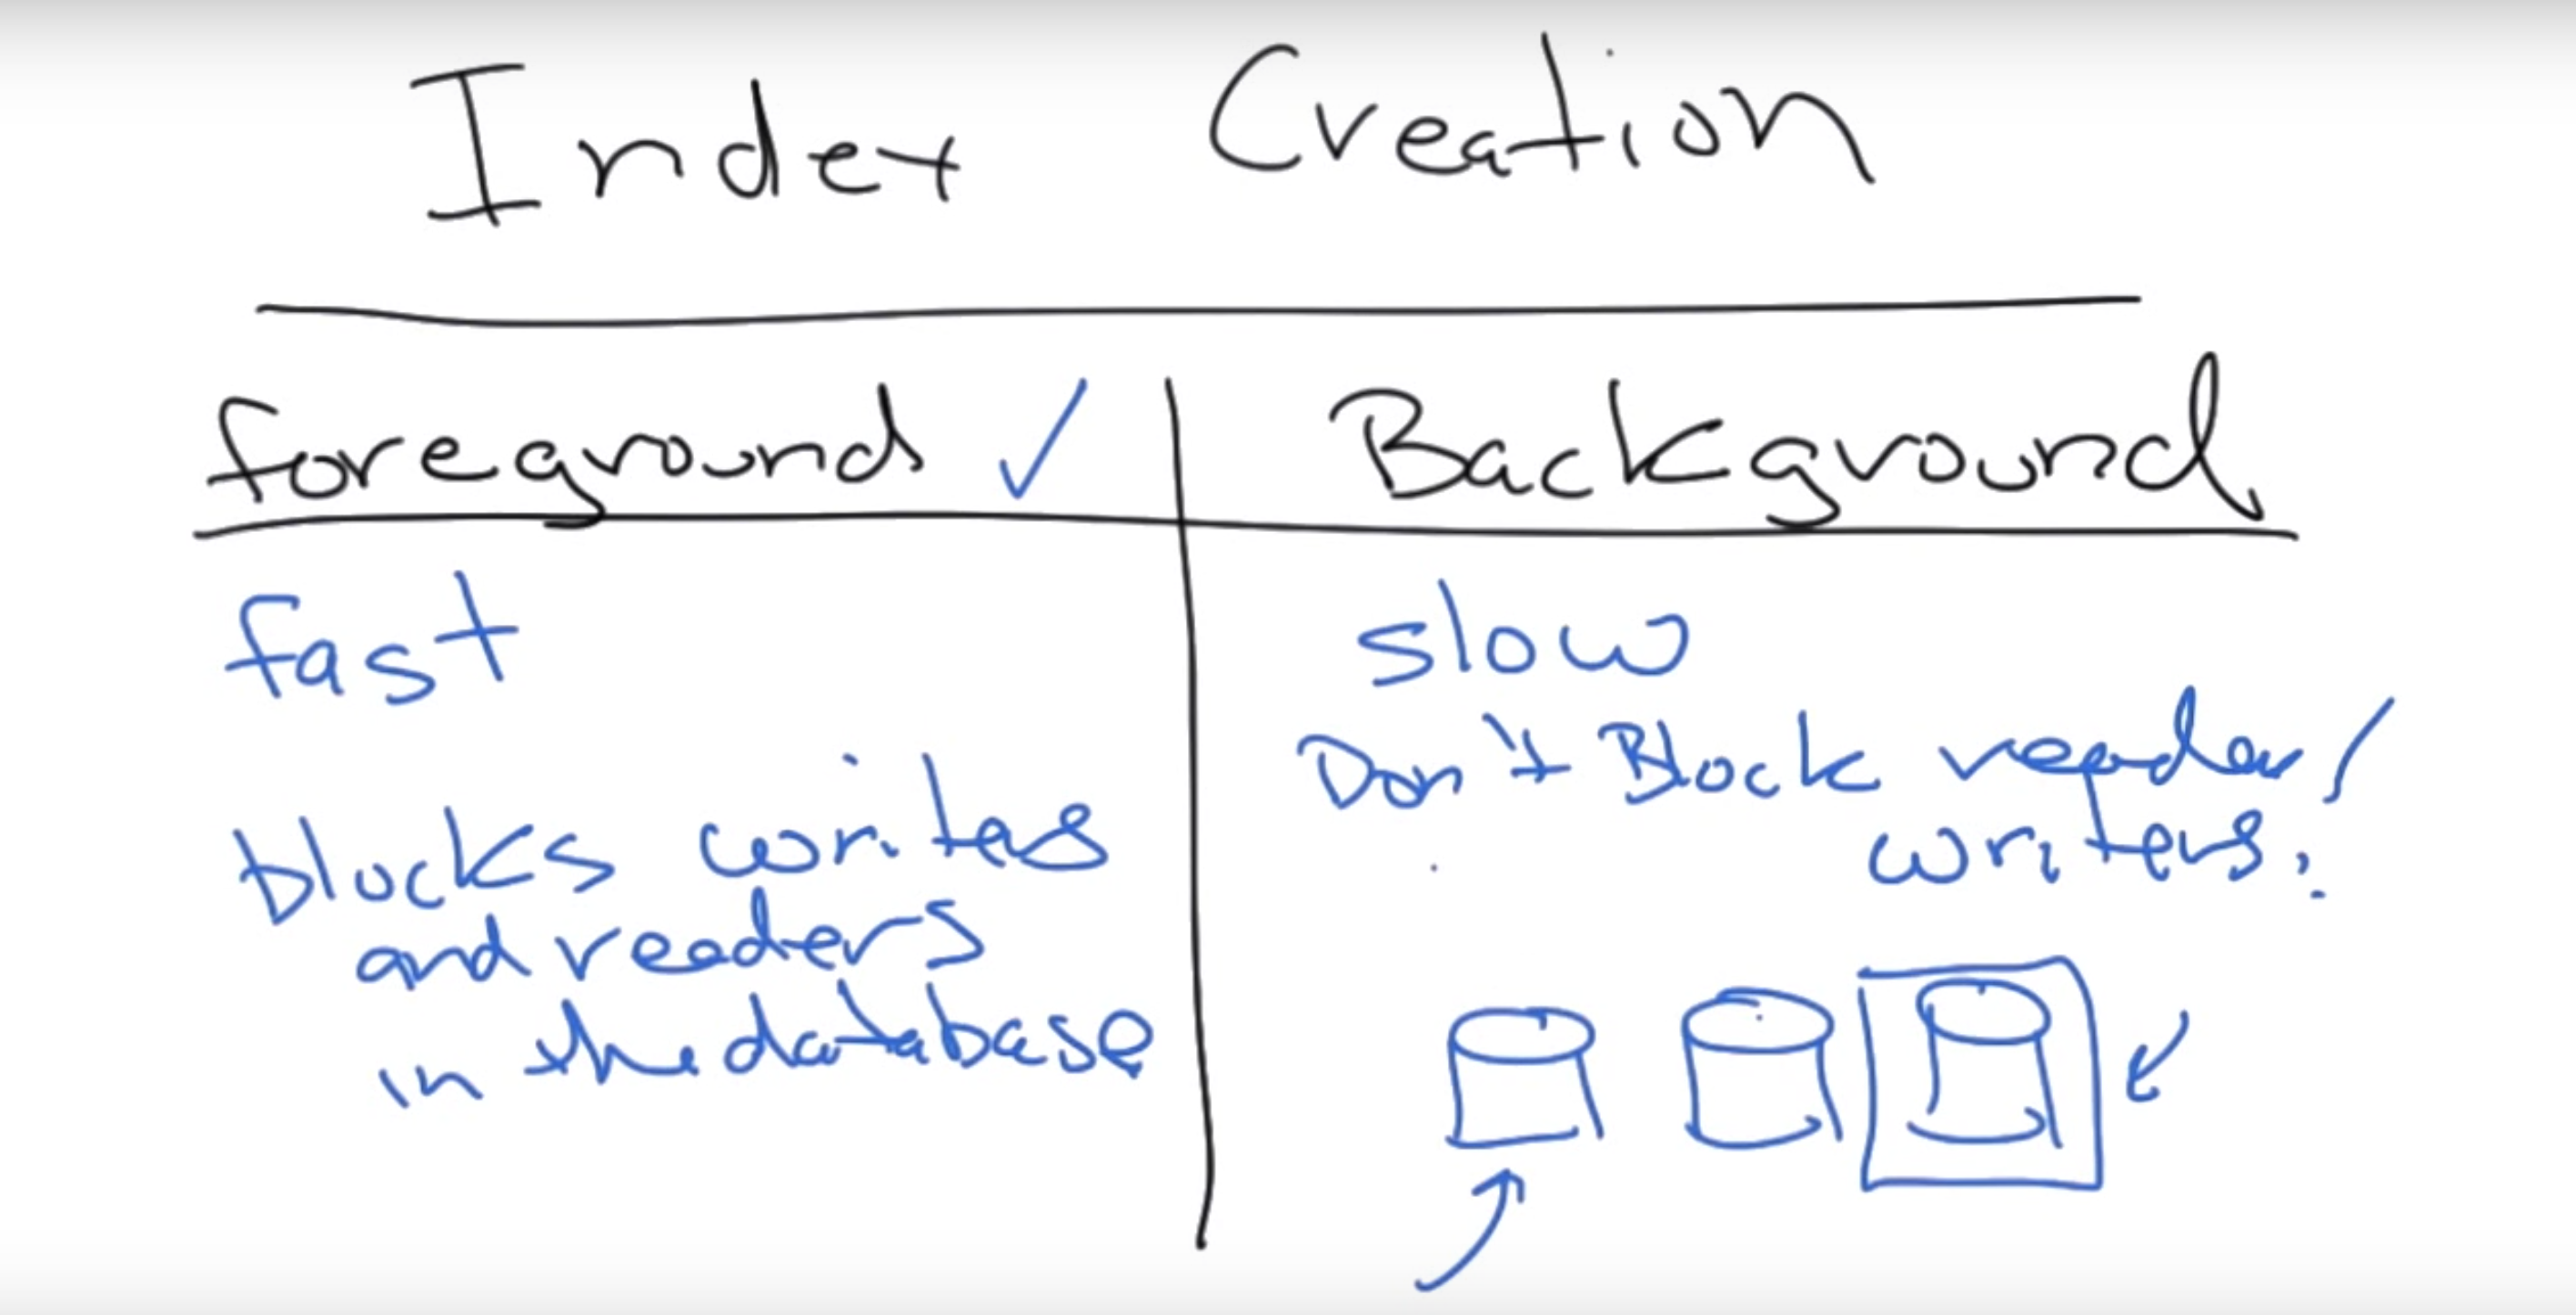 Index Creation
foreground ✓
Background
fast
blocks writers
and readers
in the database
slow
Don't Block reader/
writers.